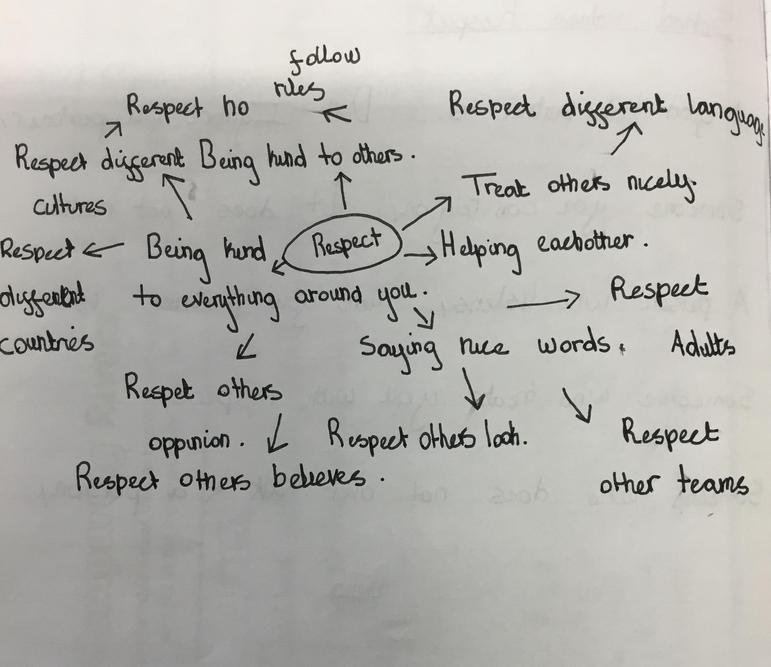 follow
rules
Respect ho
Respect different language
Respect different
cultures
Being kind to others.
Treat others nicely.
Respect
Respect
different
countries
Being kind
to everything around you.
Helping eachother.
Respect
Adults
Saying nice words.
Respet others
oppinion.
Respect others look.
Respect
other teams
Respect others believes.